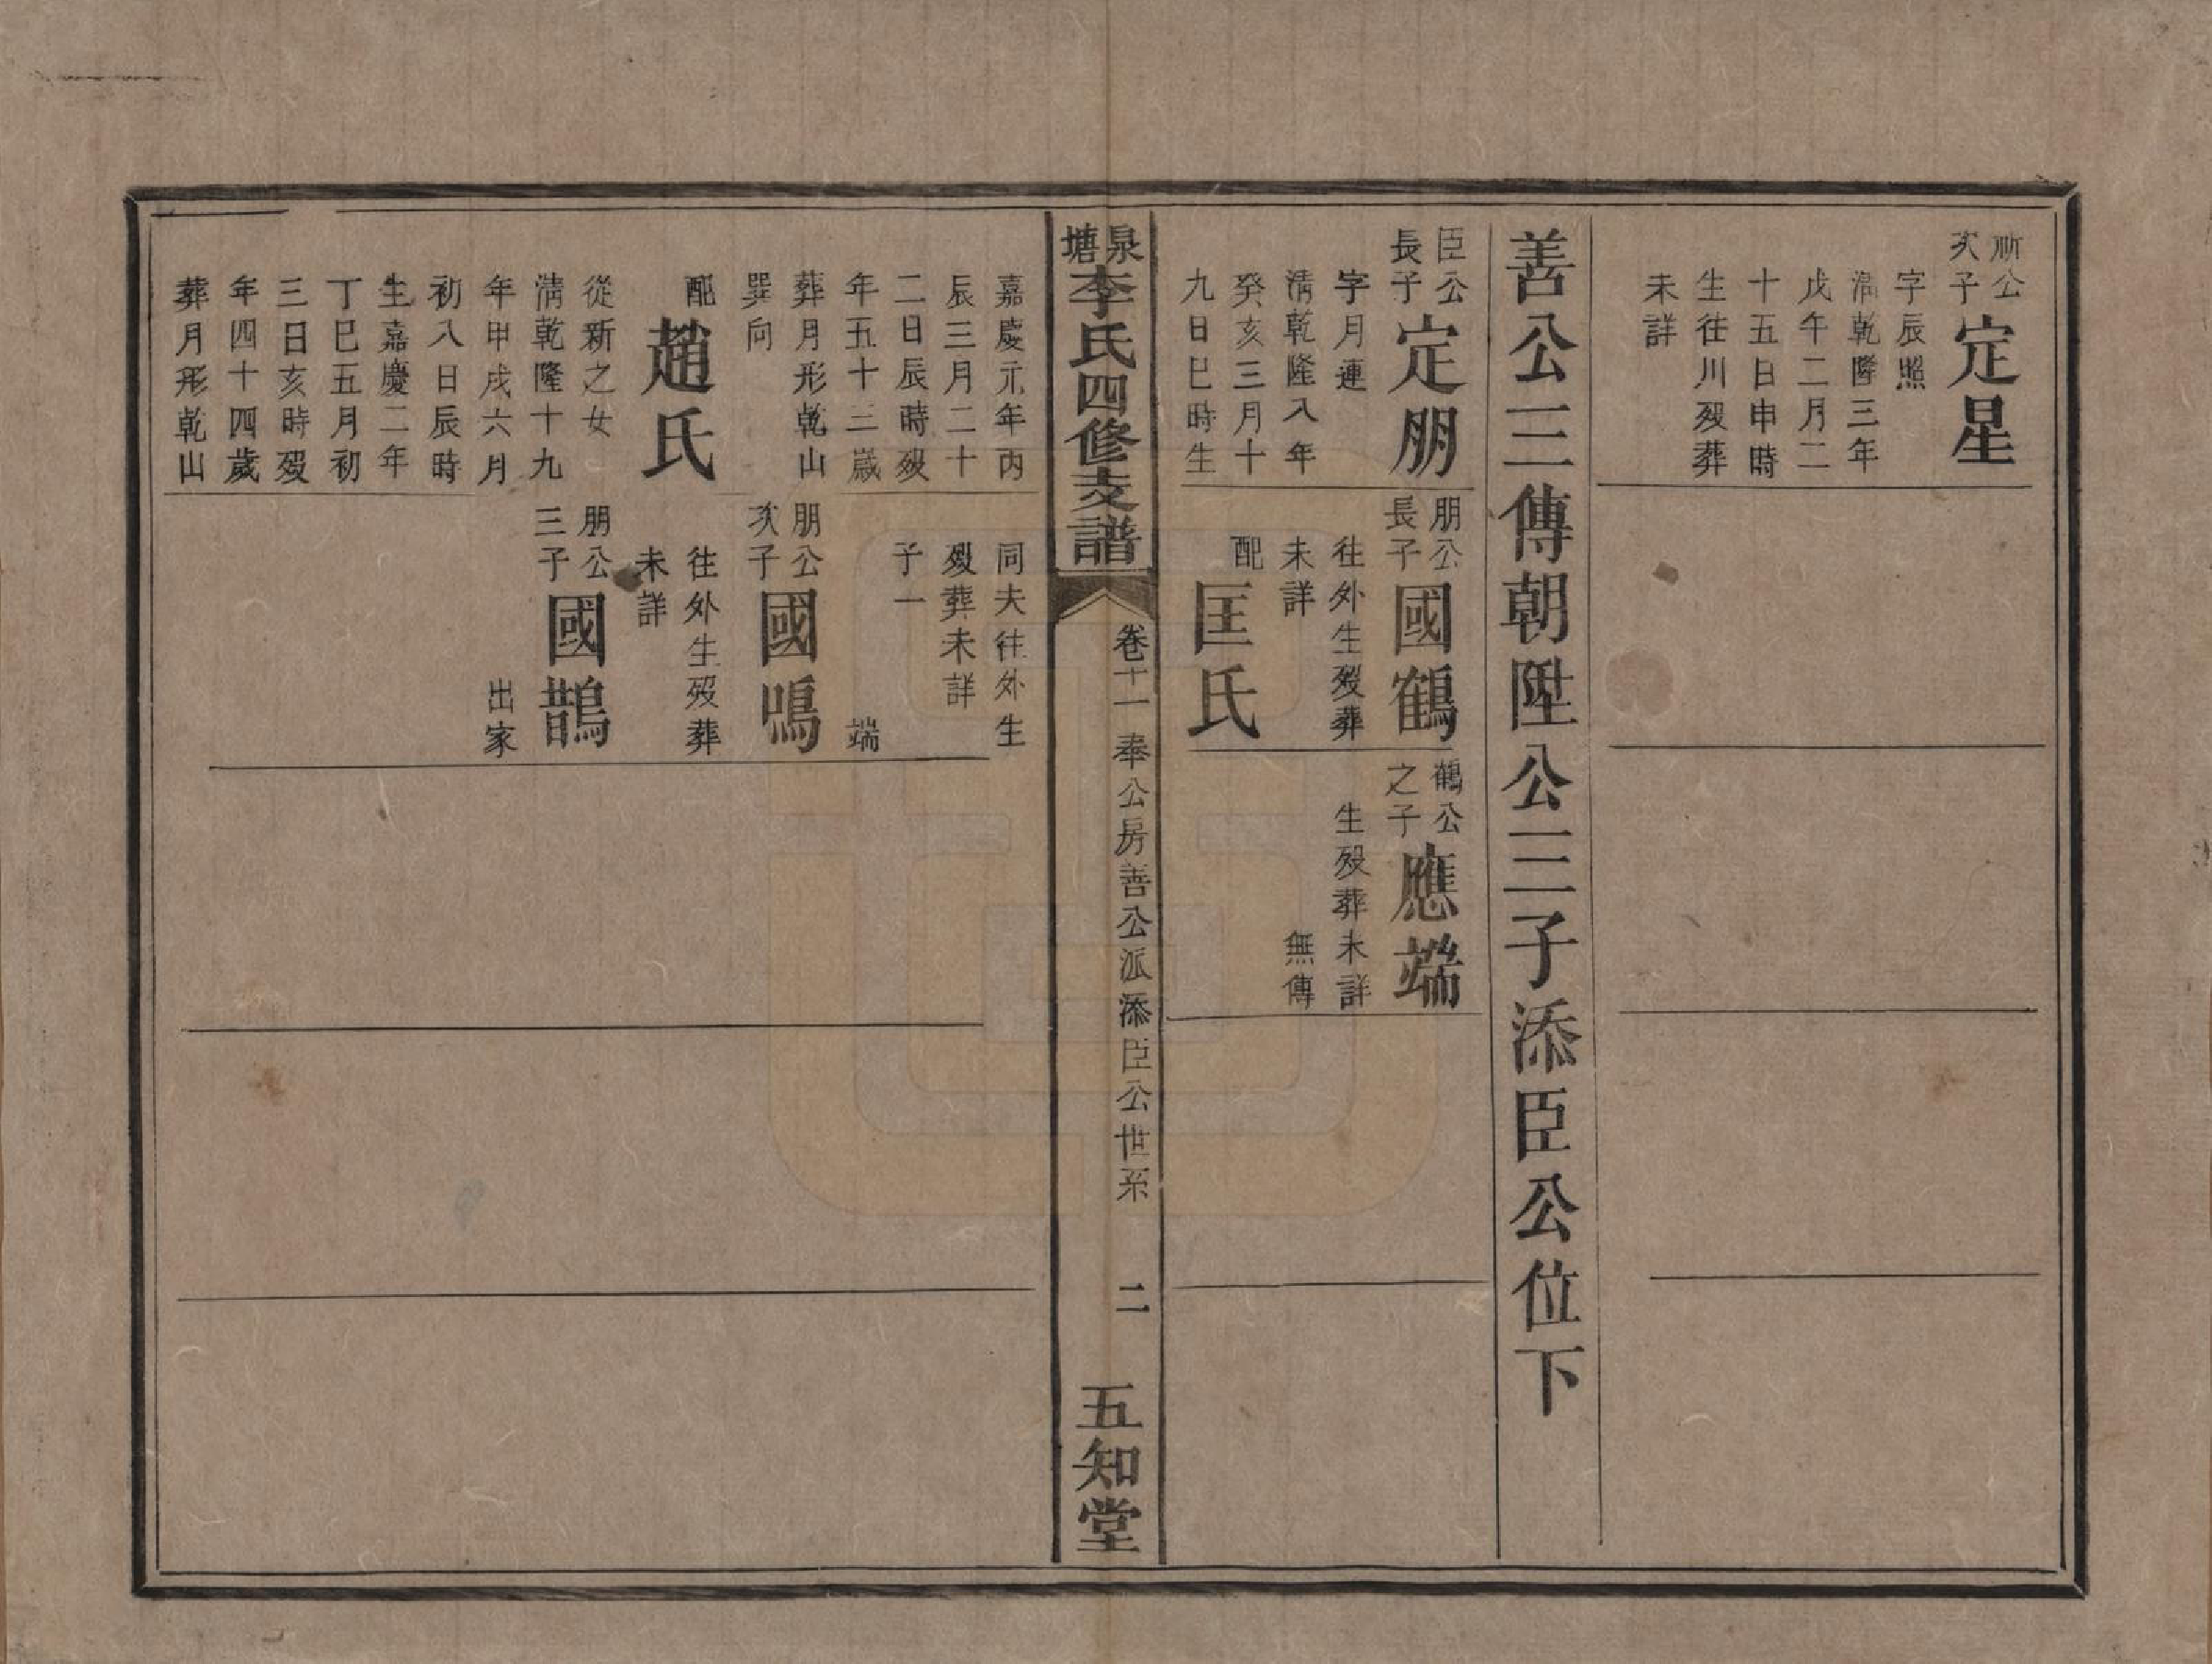 公
次子
定星
字辰照
清乾隆三年
戊午二月二
十五日申時
生往川歿葬
未詳
善公三傳朝陞公三子添臣公位下
臣公
長子
定朋
字月連
清乾隆八年
癸亥三月十
九日巳時生
朋公
長子
國鶴
往外生歿葬
未詳
配
匡氏
鶴公
之子
應端
生歿葬未詳
無傳
泉塘李氏四修支譜
卷十一奉公房善公派添臣公世系
二
五知堂
嘉慶元年丙
辰三月二十
二日辰時歿
年五十三歲
葬月形乾山
巽向
配
趙氏
從新之女
清乾隆十九
年甲戌六月
初八日辰時
生嘉慶二年
丁巳五月初
三日亥時歿
年四十四歲
葬月形乾山
同夫往外生
歿葬未詳
子一
端
朋公
次子
國鳴
往外生歿葬
未詳
朋公
三子
國鵲
出家